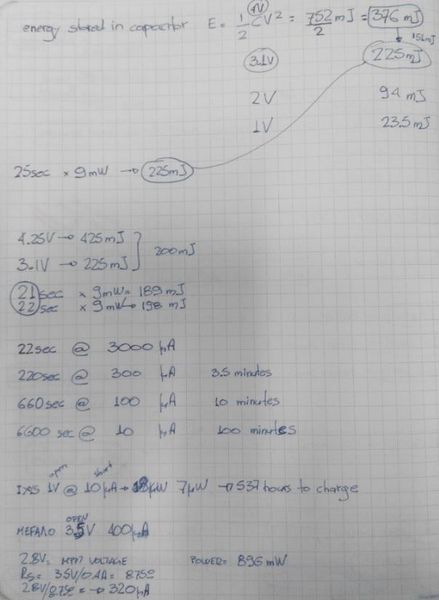 energy stored in capacitor E = 1/2 CV² = 752/2 mJ = 376 mJ
4V
151mJ
3.1V 225mJ
2V 94 mJ
1V 23.5 mJ
25sec × 9mW → 225mJ
4.25V → 425mJ
3.1V → 225mJ } 200mJ
21 sec × 9mW = 189 mJ
22 sec × 9mW → 198 mJ
22sec @ 3000 µA
220sec @ 300 µA 3.5 minutes
660sec @ 100 µA 10 minutes
6600 sec @ 10 µA 100 minutes
open short
IXYS 1V @ 10µA → µW 7µW → 537 hours to charge
OPEN
ΜΕΓΑΛΟ 3.5V 400µA
2.8V = MPPT VOLTAGE POWER = 896 mW
RS = 3.5V/0.4A = 8.75Ω
2.8V/8.75Ω = → 320µA